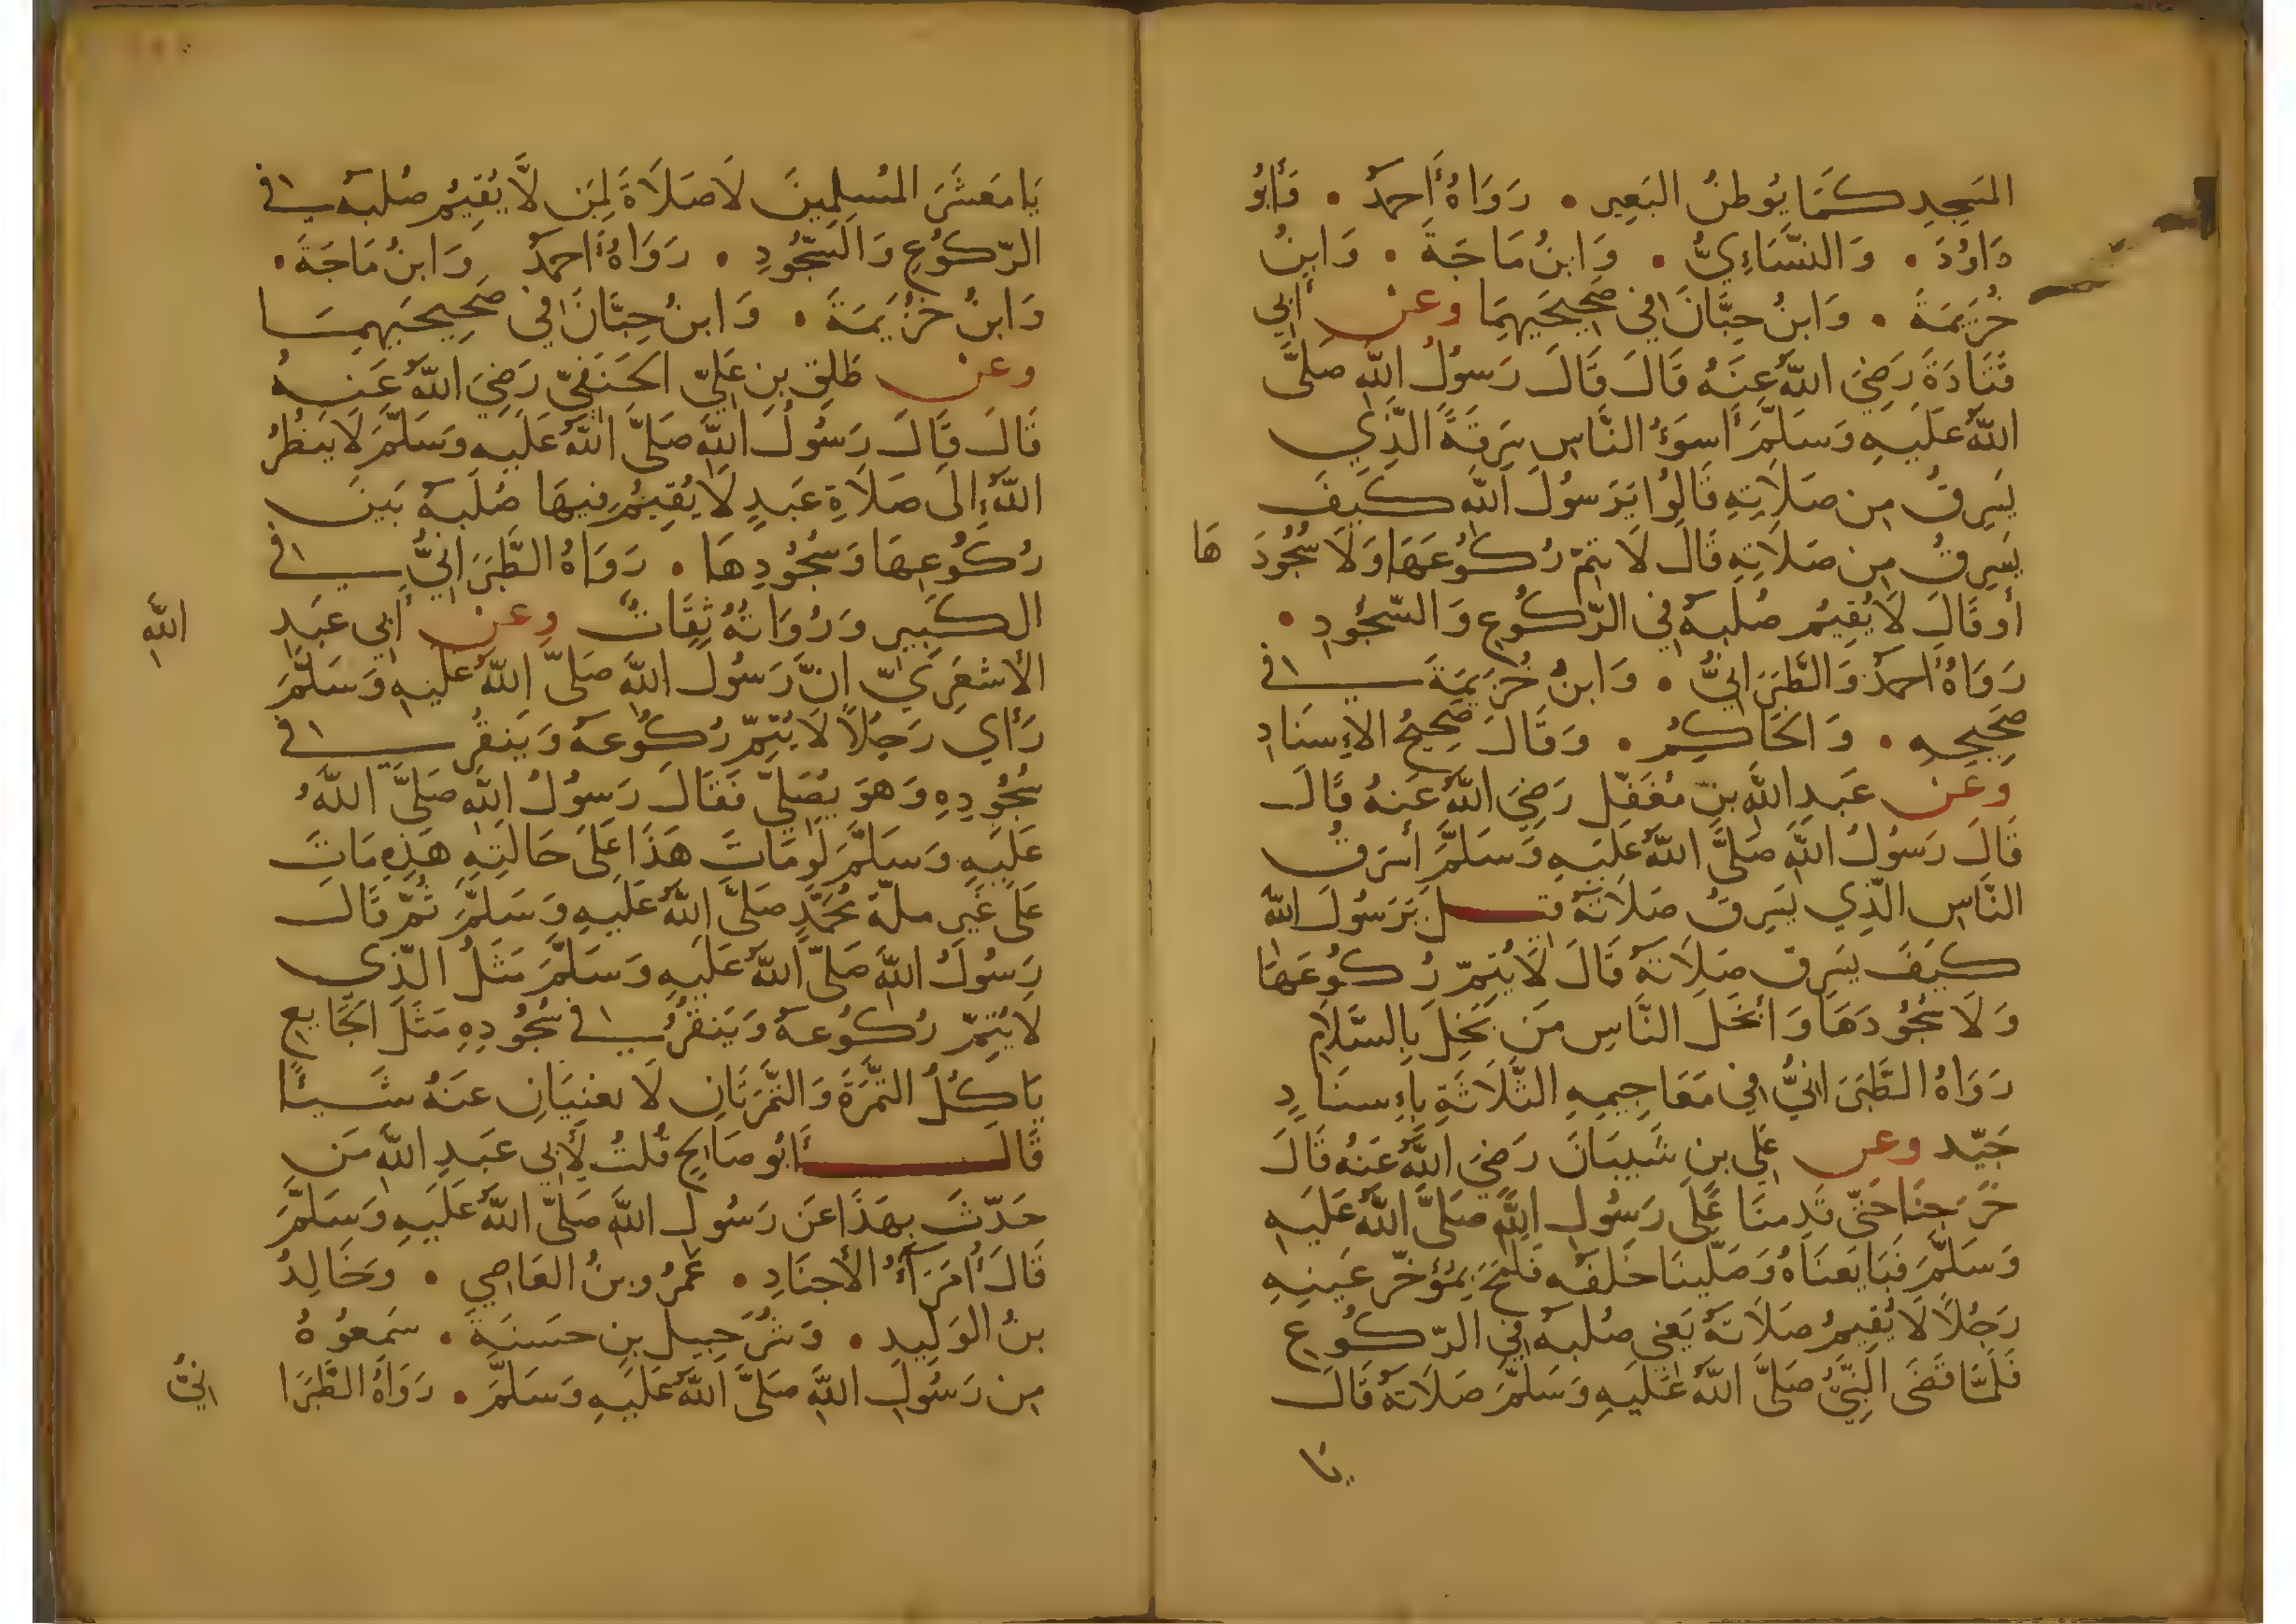 المَسجِدِ كَمَا يُوطِنُ البَعِير • رَوَاهُ أَحمَدُ • وَأَبُو
دَاوُدَ • وَالنَّسَاءِيُّ • وَابنُ مَاجَةَ • وَابنُ
خُزَيمَةَ • وَابنُ حِبَّانَ فِي صَحِيحَيهِمَا وعن أَبِي
قَتَادَةَ رَضِيَ اللَّهُ عَنهُ قَالَ قَالَ رَسُولُ اللَّهِ صَلَّى
اللَّهُ عَلَيهِ وَسَلَّمَ أَسوَءُ النَّاسِ سَرِقَةً الَّذِي
يَسرِقُ مِن صَلَاتِهِ قَالُوا يَرَسُولَ اللَّهِ كَيفَ
يَسرِقُ مِن صَلَاتِهِ قَالَ لَا يتِمّ رُكُوعَهَا وَلَا سُجُودَ هَا
أَو قَالَ لَا يُقِيمُ صُلبَهُ فِي الرّكُوعِ وَالسّجُودِ •
رَوَاهُ أَحمَدُ وَالطَّبَرَانِيُّ • وَابنُ خُزَيمَةَ فِي
صَحِيحِهِ • وَالحَاكِمُ • وَقَالَ صَحِيحُ الاِسنَادِ
وعَن عَبدِ اللَّهِ بنِ مُغَفَّلِ رَضِيَ اللَّهُ عَنهُ قَالَ
قَالَ رَسُولُ اللَّهِ صَلَّى اللَّهُ عَلَيهِ وَسَلَّمَ أَسرَقُ
النَّاسِ الَّذِي يَسرِقُ صَلَاتَهُ قيل يَرَسُولَ اللَّهِ
كَيفَ يَسرِق صَلَاتَهُ قَالَ لَا يُتِمّ رُكُوعَهَا
وَلَا سُجُودَهَا وَأَبخَلُ النَّاسِ مَن بَخِلَ بِالسَّلَامِ
رَوَاهُ الطَّبَرَانِيُّ فِي مَعَاجِيمِهِ الثَّلَاثَةِ بِاِسنَادٍ
جَيّد وعن عَلِي بنِ شَيبَانَ رَضِيَ اللَّهُ عَنهُ قَالَ
خَرَجنَا حَتّى قَدِمنَا عَلَى رَسُولِ اللَّهِ صَلَّى اللَّهُ عَلَيهِ
وَسَلَّمَ فَبَايَعنَاهُ وَصَلَّينَا خَلفَهُ فَلَمَحَ بِمُؤَخّرِ عَينِهِ
رَجُلًا لَا يُقِيمُ صَلَاتَهُ يَعنِي صُلبَهُ فِي الرّكُوعِ
فَلَمَّا قَضَى النَّبِيُّ صَلَّى اللَّهُ عَلَيهِ وَسَلَّمَ صَلَاتَهُ قَالَ
يَا
يَا مَعشَرَ المُسلِمِينَ لَا صَلَاةَ لِمَن لَّا يُقِيمُ صُلبَهُ فِي
الرّكُوعِ وَالسّجُودِ • رَوَاهُ أَحمَدُ وَابنُ مَاجَةَ •
وَابنُ خُزَيمَةَ • وَابنُ حِبَّانَ فِي صَحِيحَيهِمَا
وعن طَلقِ بنِ عَلِيّ الحَنَفِيّ رَضِيَ اللَّهُ عَنهُ
قَالَ قَالَ رَسُولُ اللَّهِ صَلَّى اللَّهُ عَلَيهِ وَسَلَّمَ لَا يَنظُرُ
اللَّهُ إِلَى صَلَاةِ عَبدٍ لَا يُقِيمُ فِيهَا صُلبَهُ بَينَ
رُكُوعِهَا وَسُجُودِهَا • رَوَاهُ الطَّبَرَانِيُّ فِي
الكَبِيرِ وَرُوَاتُهُ ثِقَاتٌ وعن أَبِي عَبدِ اللَّهِ
الأَشعَرِيّ انَّ رَسُولَ اللَّهِ صَلَّى اللَّهُ عَلَيهِ وَسَلَّمَ
رَأَي رَجُلًا لَا يُتِمّ رُكُوعَهُ وَيَنقُر فِي
سُجُودِهِ وَهوَ يُصَلِّي فَقَالَ رَسُولُ اللَّهِ صَلَّى اللَّهُ
عَلَيهِ وَسَلَّمَ لَو مَاتَ هَذَا عَلَى حَالَتِهِ هَذِهِ مَاتَ
عَلَى غَيرِ ملّة مُحَمَّدٍ صَلَّى اللَّهُ عَلَيهِ وَسَلَّمَ ثُمّ قَالَ
رَسُولُ اللَّهِ صَلَّى اللَّهُ عَلَيهِ وَسَلَّمَ مَثَلُ الَّذِي
لَا يُتِمّ رُكُوعَهُ وَيَنقُرُ فِي سُجُودِهِ مَثَلُ الجَايعِ
يَاكُلُ التَّمرَةَ وَالتَّمرَتَانِ لَا يغنِيَانِ عَنهُ شَيئًا
قَالَ أَبُو صَالِحٍ قُلتُ لِأَبِي عَبدِ اللَّهِ مَن
حَدّثَ بِهَذَا عَن رَسُولِ اللَّهِ صَلَّى اللَّهُ عَلَيهِ وَسَلَّمَ
قَالَ أُمَرَآءُ الأَجنَادِ • عَمرُو بنُ العَاصِي • وَخَالِدُ
بنُ الوَلِيدِ • وَشُرَحبِيل بنِ حَسَنَةَ • سَمِعُوهُ
مِن رَسُولِ اللَّهِ صَلَّى اللَّهُ عَلَيهِ وَسَلَّمَ • رَوَاهُ الطَّبَرَا نِيُّ